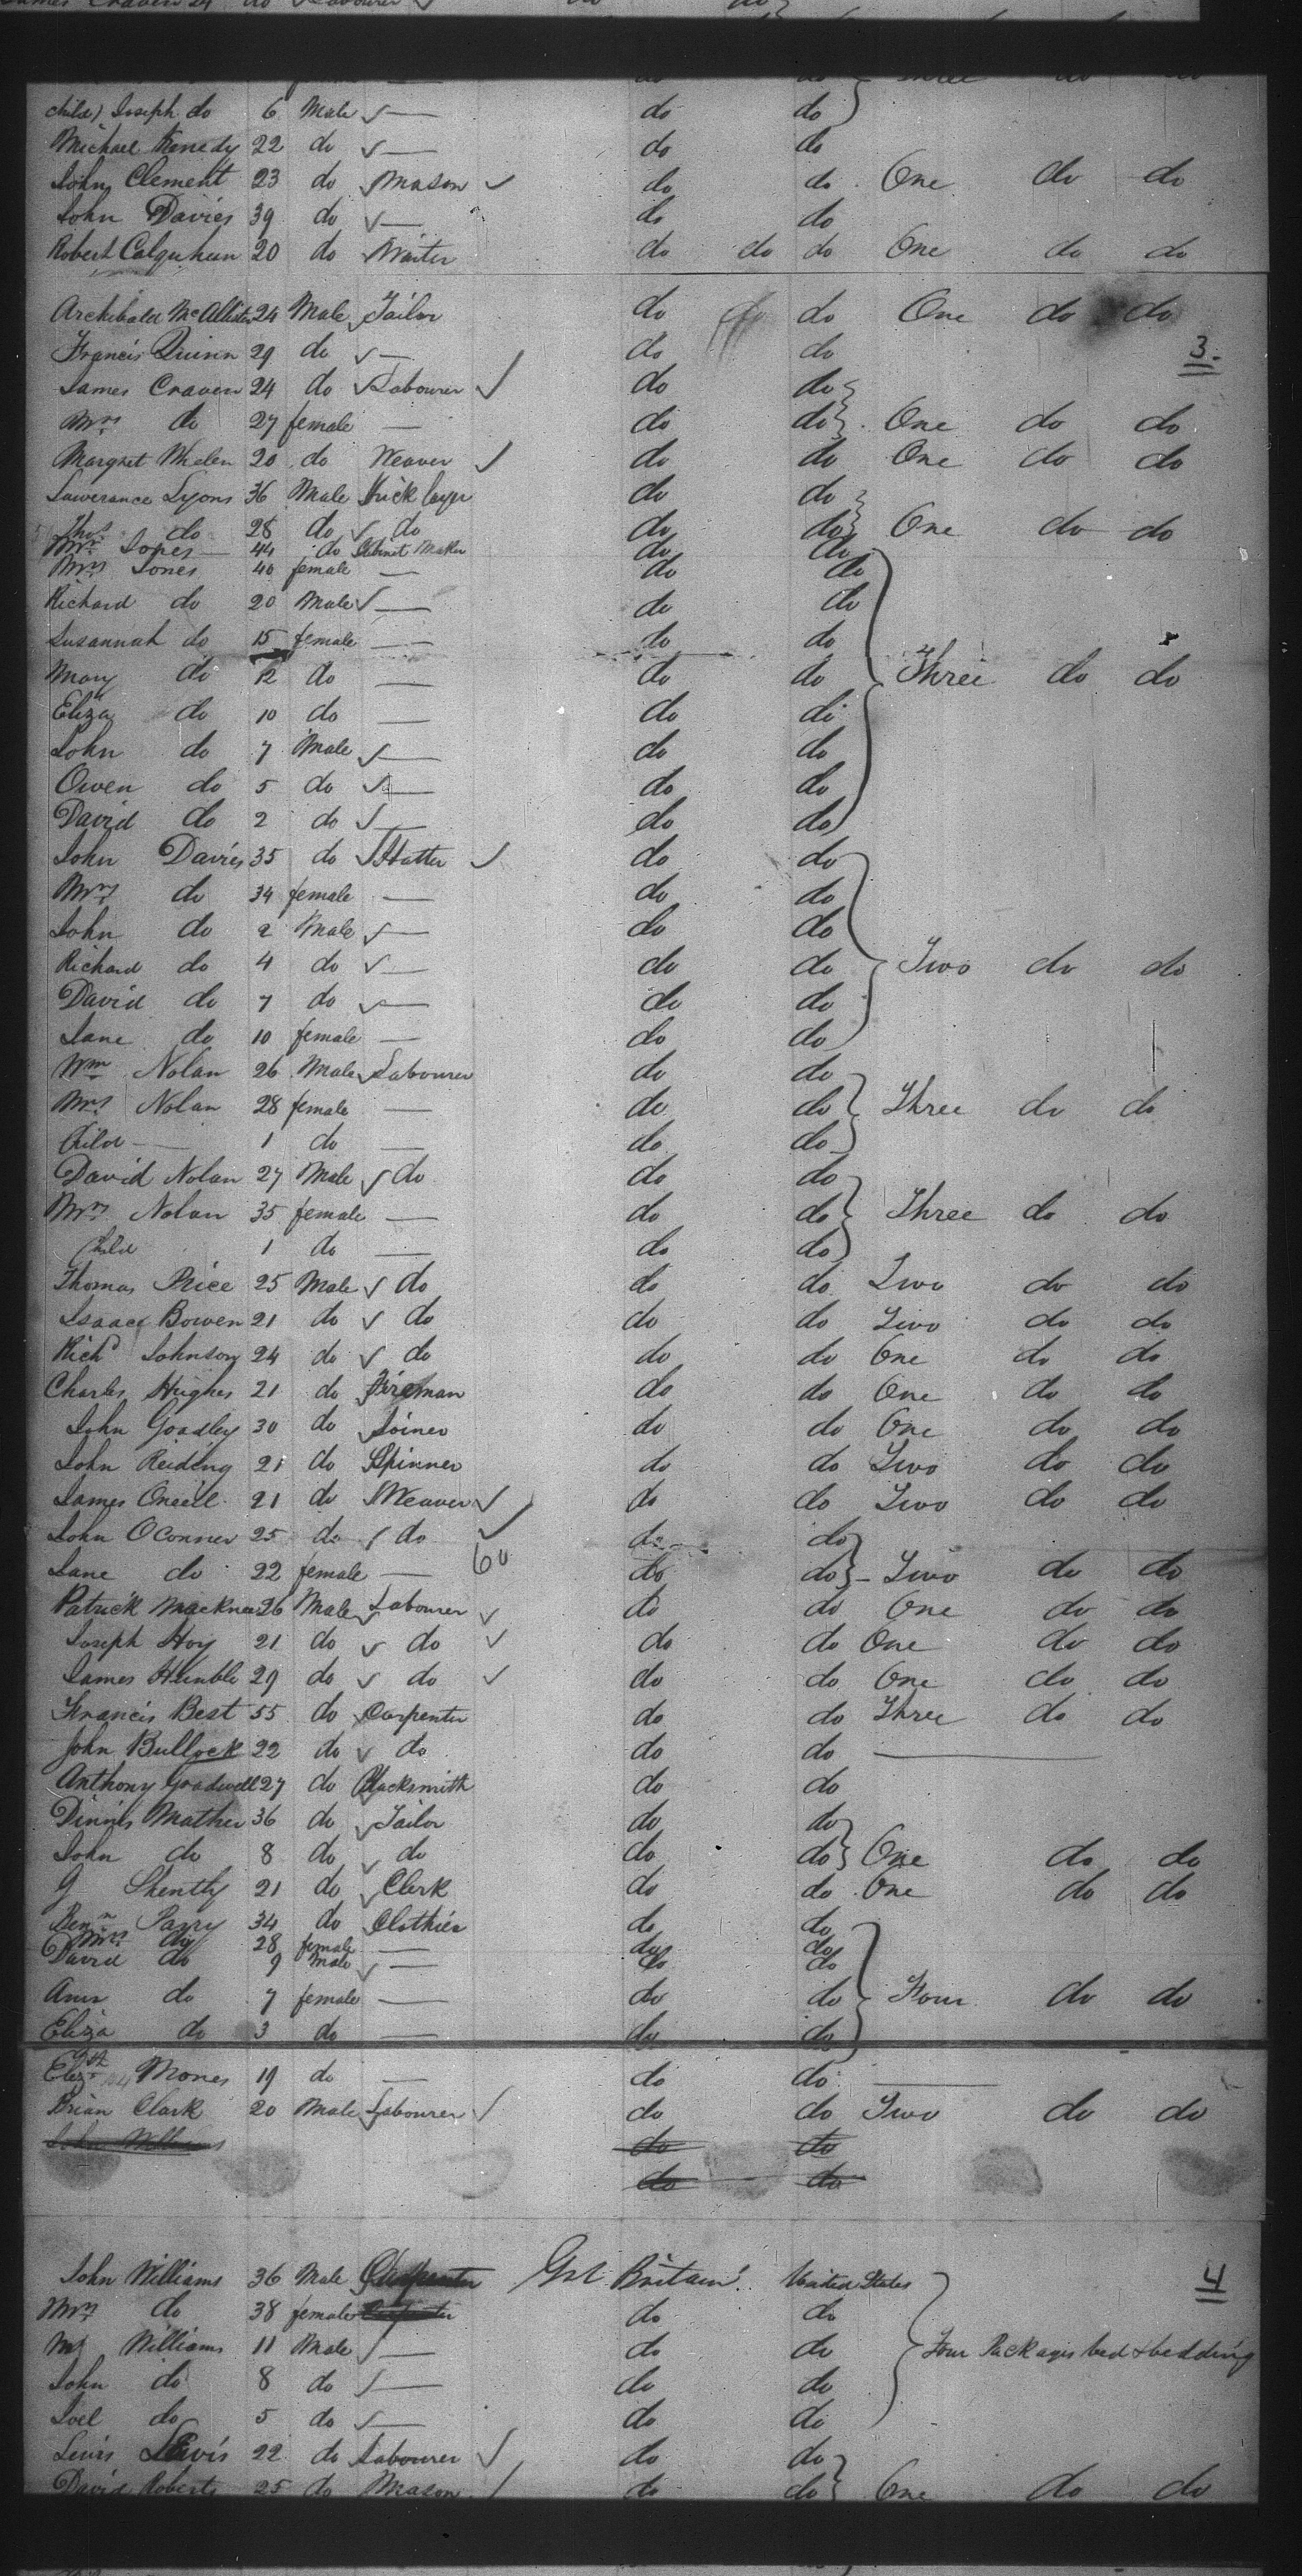 James Craven 24 do Labourer do do
Three do do
child) Joseph do 6 Male — do do
Michael Kenedy 22 do — do do
John Clement 23 do Mason do do One do do
John Davies 39 do — do do
Robert Calquhun 20 do Waiter do do do One do do
Archibald McAllister 24 Male Tailor do do do One do do
Francis Quinn 29 do — do do
3.
James Craven 24 do Labourer do do
Mrs do 27 female — do do One do do
Margret Whelen 20 do Weaver do do One do do
Lawerance Lyons 36 Male Brick layer do do
Thos do 28 do do do do One do do
Mr Jones — 44 do Cabinet Maker do do
Mrs Jones 40 female — do do
Richard do 20 Male — do do
Susannah do 15 female — do do
Mary do 12 do — do do Three do do
Eliza do 10 do — do do
John do 7 Male — do do
Owen do 5 do — do do
David do 2 do — do do
John Davies 35 do Hatter do do
Mrs do 34 female — do do
John do 2 Male — do do
Richard do 4 do — do do Two do do
David do 7 do — do do
Jane do 10 female — do do
Wm Nolan 26 Male Labourer do do
Mrs Nolan 28 female — do do Three do do
Child — 1 do — do do
David Nolan 27 Male do do do
Mrs Nolan 35 female — do do Three do do
Child 1 do — do do
Thomas Price 25 Male do do do Two do do
Isaac Bowen 21 do do do do Two do do
Richd Johnson 24 do do do do One do do
Charles Hughes 21 do Fireman do do One do do
John Goadley 30 do Joiner do do One do do
John Reiding 21 do Spinner do do Two do do
James Oneill 21 do Weaver do do Two do do
John OConner 25 do do do do
60
Jane do 22 female — do do Two do do
Patrick Macknee 26 Male Labourer do do One do do
Joseph Hoy 21 do do do do One do do
James Humble 29 do do do do One do do
Francis Best 55 do Carpenter do do Three do do
John Bullock 22 do do do do —
Anthony Goadwell 27 do Blacksmith do do
Dinnis Mather 36 do Tailor do do
John do 8 do do do do One do do
G Shently 21 do Clerk do do One do do
Benn Parry 34 do Clothier do do
Mrs do 28 female — do do
David do 9 Male — do do
Ann do 7 female — do do Four do do
Eliza do 3 do — do do
Elizth Mones 19 do — do do —
Brian Clark 20 Male Labourer do do Two do do
John Williams do do
do do
John Williams 36 Male Carpenter Grt Britain United States
4
Mrs do 38 female Carpenter do do
Williams 11 Male — do do Four Packages bed & bedding
John do 8 do — do do
Joel do 5 do — do do
Lewis Lewis 22 do Labourer do do
David Roberts 25 do Mason do do One do do